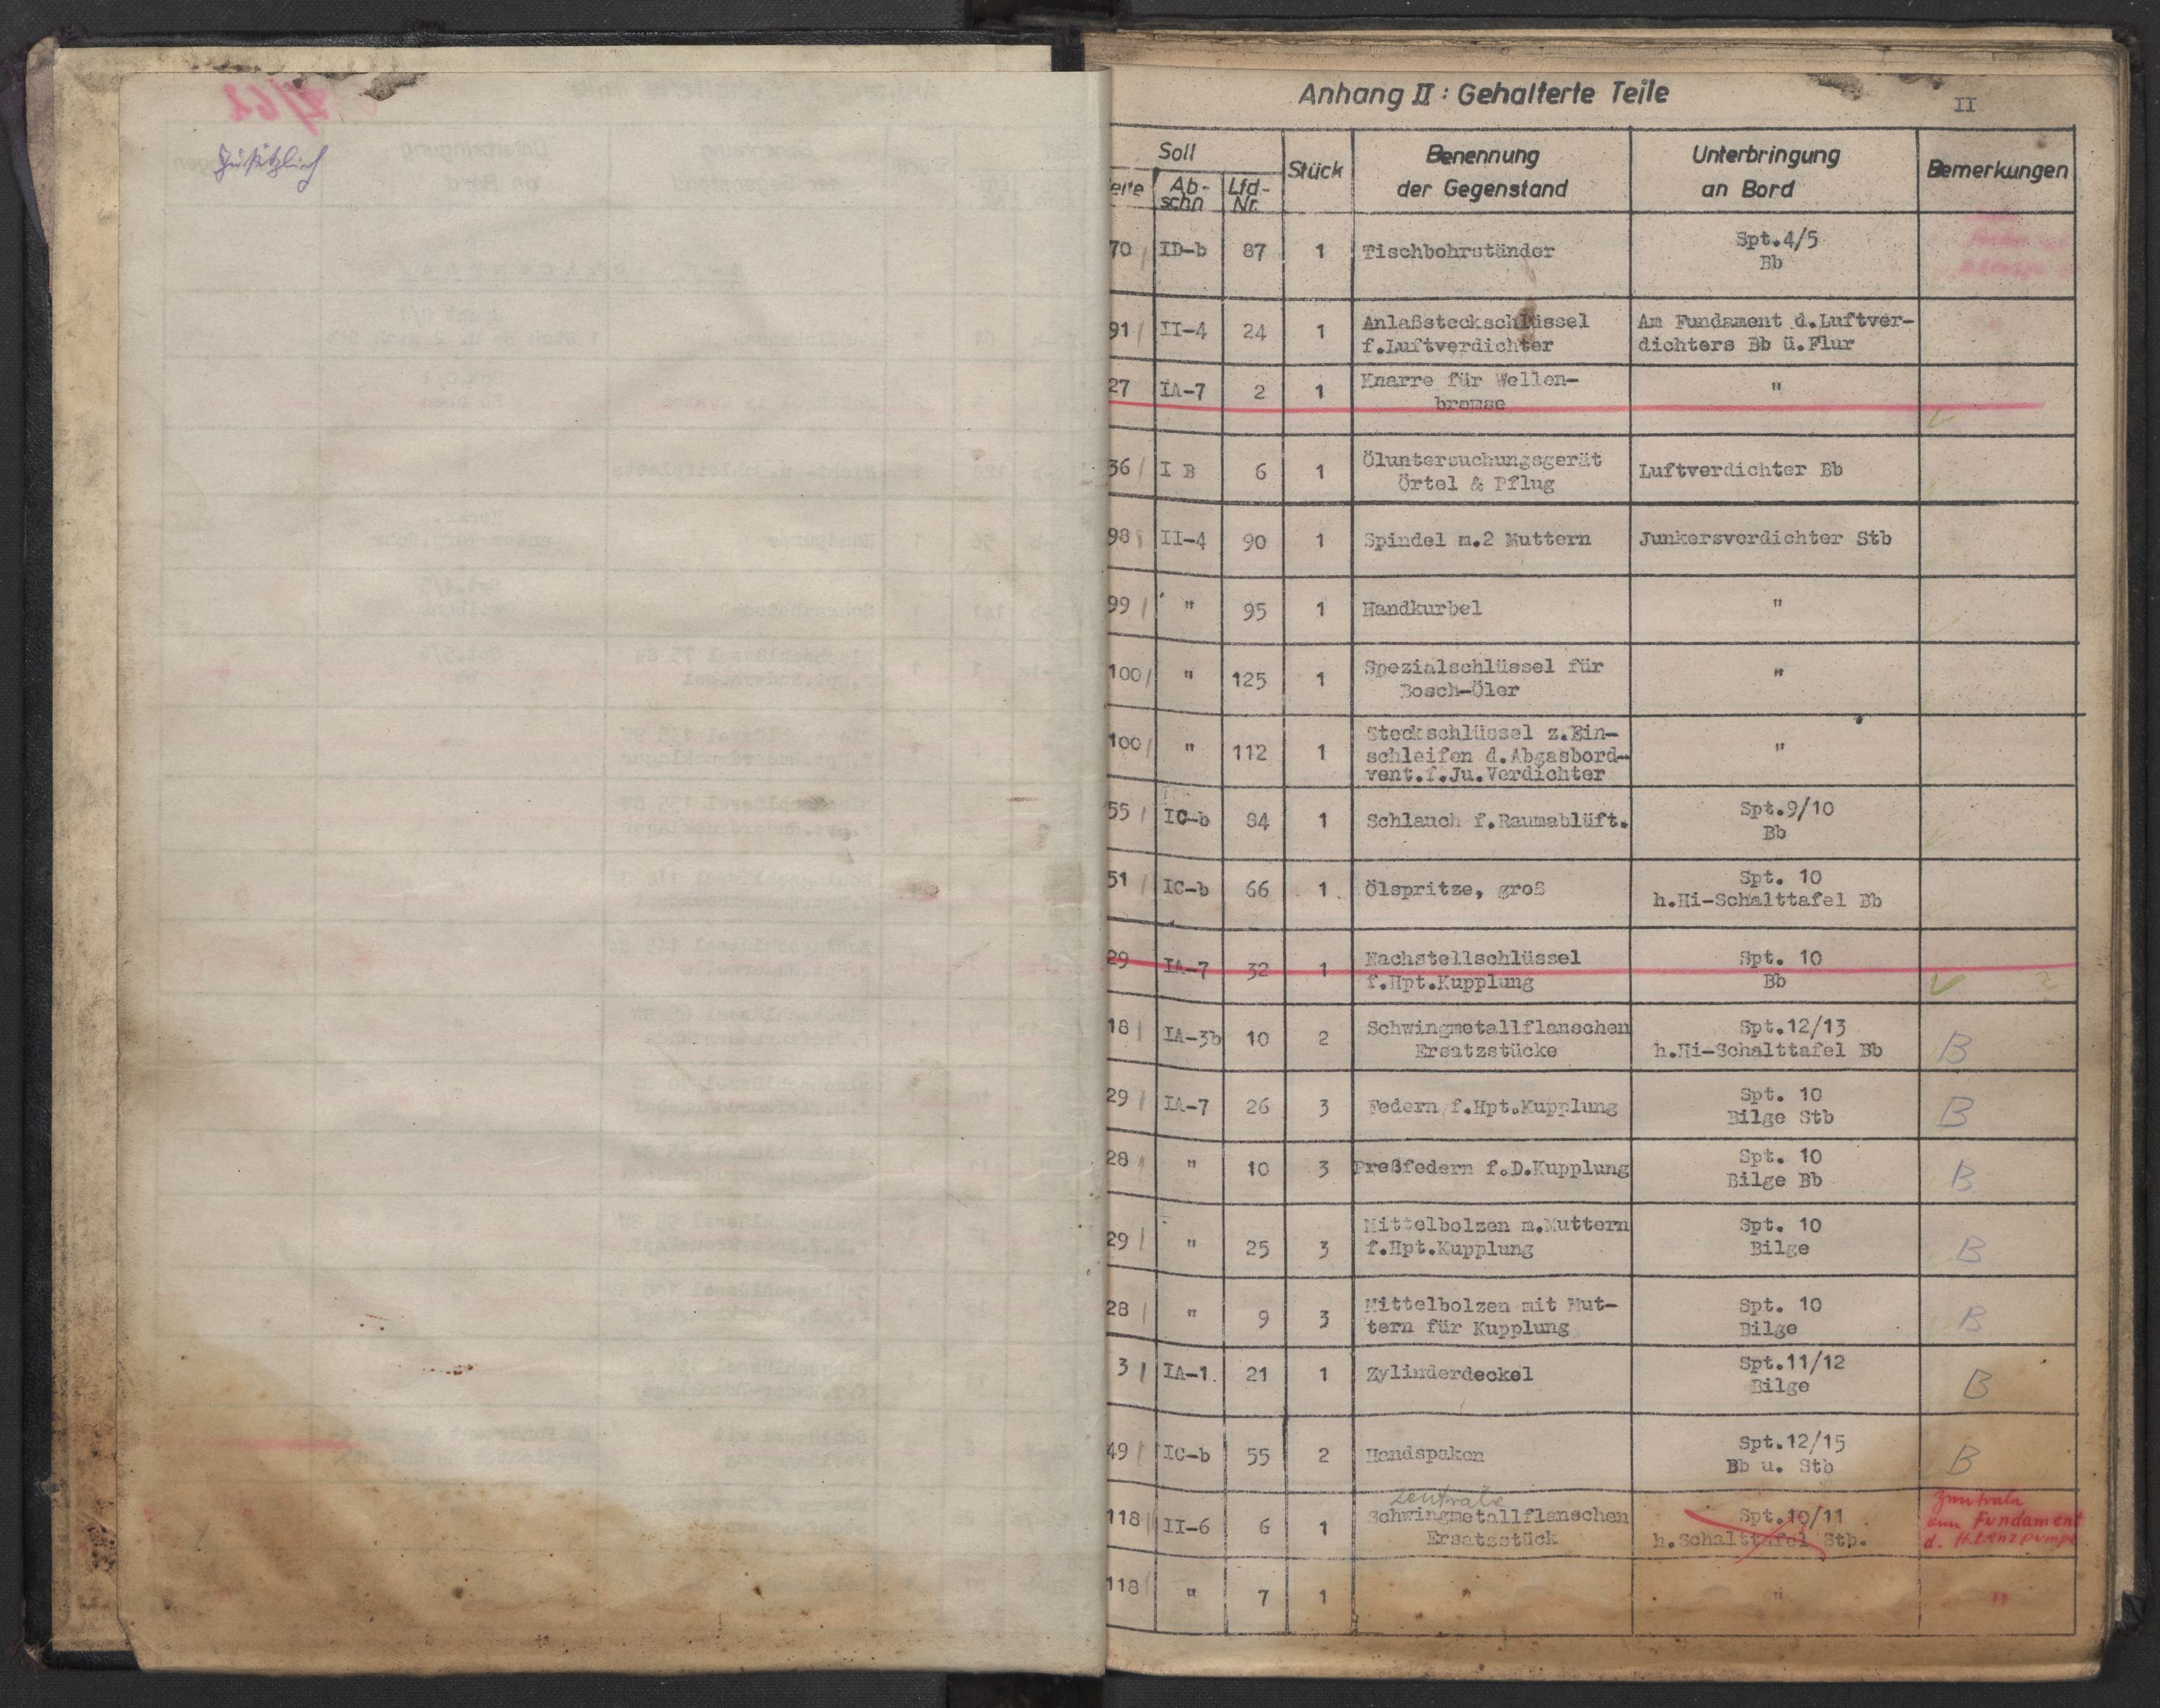 Zusätzlich
Anhang II : Gehalterte Teile
II
Soll
Stück
Benennung
der Gegenstand
Unterbringung
an Bord
Bemerkungen
eite Ab-schn Lfd-Nr.
70 ID-b 87 1 Tischbohrständer Spt.4/5
Bb
91 II-4 24 1 Anlaßsteckschlüssel Am Fundament d.Luftver-
f.Luftverdichter dichters Bb ü.Flur
27 IA-7 2 1 Knarre für Wellen- "
bremse
36 I B 6 1 Öluntersuchungsgerät Luftverdichter Bb
Örtel & Pflug
98 II-4 90 1 Spindel m.2 Muttern Junkersverdichter Stb
99 " 95 1 Handkurbel "
100 " 125 1 Spezialschlüssel für "
Bosch-Öler
100 " 112 1 Steckschlüssel z.Ein-
schleifen d.Abgasbord- "
vent.f.Ju.Verdichter
55 IC-b 84 1 Schlauch f.Raumablüft. Spt.9/10
Bb
51 IC-b 66 1 Ölspritze, groß Spt. 10
h.Hi-Schalttafel Bb
29 IA-7 32 1 Nachstellschlüssel Spt. 10
f.Hpt.Kupplung Bb
18 IA-3b 10 2 Schwingmetallflanschen Spt.12/13
Ersatzstücke h.Hi-Schalttafel Bb B
29 IA-7 26 3 Federn f.Hpt.Kupplung Spt. 10
Bilge Stb B
28 " 10 3 Preßfedern f.D.Kupplung Spt. 10
Bilge Bb B
29 " 25 3 Mittelbolzen m.Muttern Spt. 10
f.Hpt.Kupplung Bilge B
28 " 9 3 Mittelbolzen mit Mut- Spt. 10
tern für Kupplung Bilge B
3 IA-1. 21 1 Zylinderdeckel Spt.11/12
Bilge B
49 IC-b 55 2 Handspaken Spt.12/15
Bb u. Stb B
Zentrale Zentrale
118 II-6 6 1 Schwingmetallflanschen Spt.10/11 am Fundament
Ersatzstück h.Schalttafel Stb. d. H.Lenzpumpe
118 " 7 1 " " "